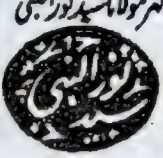 مہر مولانا سید نور الہٰی
سید نور الہٰی